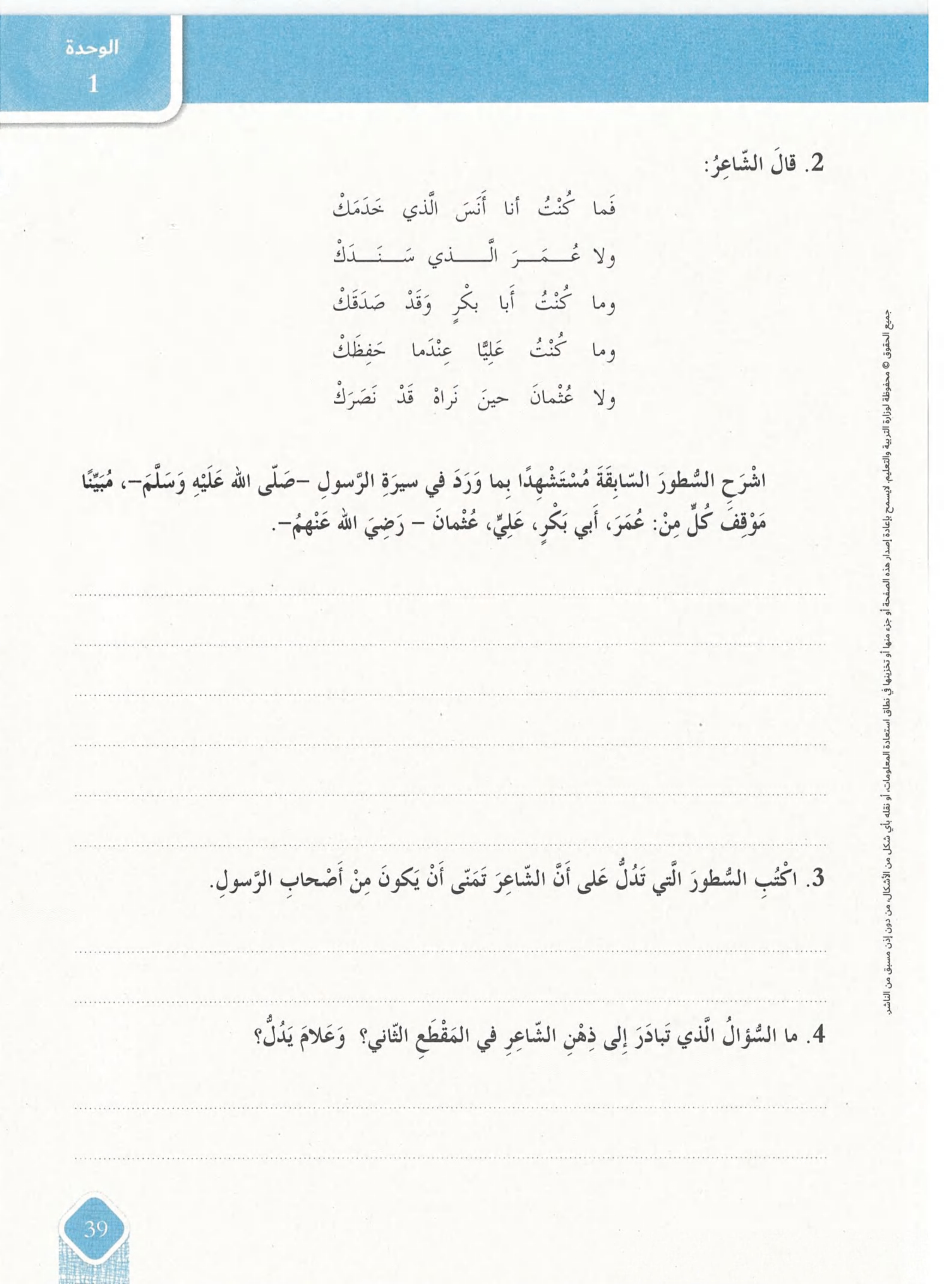 الوحدة
1
2. قالَ الشّاعِرُ:
فَما كُنْتُ أنا أَنَسَ الَّذي خَدَمَكْ
ولا عُـــمَـــرَ الَّـــــذي سَـــنَـــدَكْ
وما كُنْتُ أَبا بكْرٍ وَقَدْ صَدَقَكْ
وما كُنْتُ عَلِيًّا عِنْدَما حَفِظَكْ
ولا عُثْمانَ حينَ نَراهْ قَدْ نَصَرَكْ
اشْرَحِ السُّطورَ السّابِقَةَ مُسْتَشْهِدًا بِما وَرَدَ في سيرَةِ الرَّسولِ –صَلّى الله عَلَيْهِ وَسَلَّمَ–، مُبَيِّنًا
مَوْقِفَ كُلٍّ مِنْ: عُمَرَ، أَبي بَكْرٍ، عَلِيٍّ، عُثْمانَ – رَضِيَ الله عَنْهمُ–.
3. اكْتُبِ السُّطورَ الَّتي تَدُلُّ عَلى أَنَّ الشّاعِرَ تَمَنّى أَنْ يَكونَ مِنْ أَصْحابِ الرَّسولِ.
4. ما السُّؤالُ الَّذي تَبادَرَ إِلى ذِهْنِ الشّاعِرِ في المَقْطَعِ الثّاني؟ وَعَلامَ يَدُلُّ؟
جميع الحقوق © محفوظة لوزارة التربية والتعليم. لايسمح بإعادة إصدار هذه الصفحة أو جزء منها أو تخزينها في نطاق استعادة المعلومات، أو نقله بأي شكل من الأشكال، من دون إذن مسبق من الناشر.
39